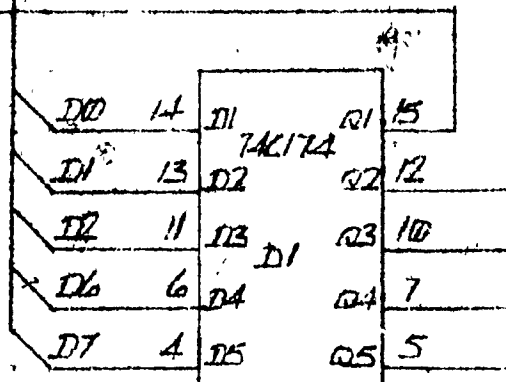 D0 14 D1 Q1 15
74C174
D1 13 D2 Q2 12
D2 11 D3 Q3 10
D1
D6 6 D4 Q4 7
D7 4 D5 Q5 5